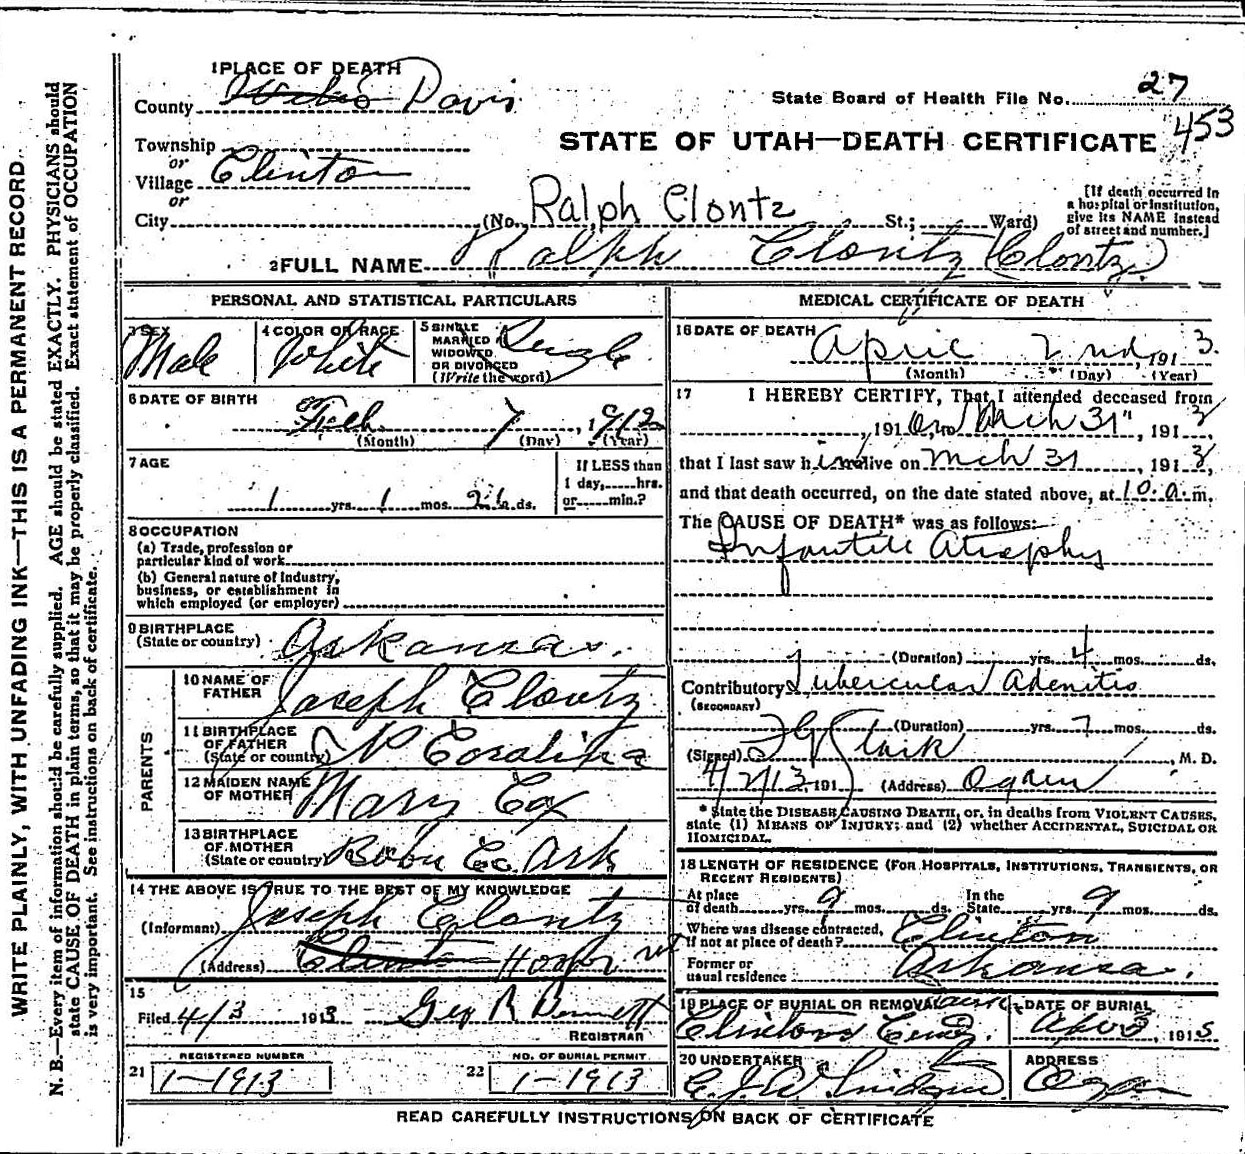 WRITE PLAINLY, WITH UNFADING INK—THIS IS A PERMANENT RECORD.
N. B.—Every item of information should be carefully supplied. AGE should be stated EXACTLY. PHYSICIANS should
state CAUSE OF DEATH in plain terms, so that it may be properly classified. Exact statement of OCCUPATION
is very important. See instructions on back of certificate.
1 PLACE OF DEATH
County Weber Davis
State Board of Health File No. 27
453
STATE OF UTAH—DEATH CERTIFICATE
Township
or
Village Clinton
or
City (No. Ralph Clontz St.; Ward)
[If death occurred in
a hospital or institution,
give its NAME instead
of street and number.]
2 FULL NAME Ralph Clontz (Clontz)
PERSONAL AND STATISTICAL PARTICULARS
3 SEX Male
4 COLOR OR RACE White
5 SINGLE
MARRIED
WIDOWED
OR DIVORCED
(Write the word)
Single
6 DATE OF BIRTH
Feb. 7, 1912
(Month) (Day) (Year)
7 AGE
1 yrs. 1 mos. 26 ds.
If LESS than
1 day, hrs.
or min.?
8 OCCUPATION
(a) Trade, profession or
particular kind of work
(b) General nature of industry,
business, or establishment in
which employed (or employer)
9 BIRTHPLACE
(State or country) Arkansas.
PARENTS
10 NAME OF
FATHER Joseph Clontz
11 BIRTHPLACE
OF FATHER
(State or country) N Coralina
12 MAIDEN NAME
OF MOTHER Mary Cox
13 BIRTHPLACE
OF MOTHER
(State or country) Co. Ark
14 THE ABOVE IS TRUE TO THE BEST OF MY KNOWLEDGE
(Informant) Joseph Clontz
(Address) Clinton Hooper
15
Filed 4/3 1913 Geo R Bennett
REGISTRAR
REGISTERED NUMBER
21 1-1913
NO. OF BURIAL PERMIT
22 1-1913
MEDICAL CERTIFICATE OF DEATH
16 DATE OF DEATH
April 2nd, 1913.
(Month) (Day) (Year)
17 I HEREBY CERTIFY, That I attended deceased from
, 191 Mch 31", 1913
that I last saw him alive on Mch 31, 1913,
and that death occurred, on the date stated above, at 10.a.m.
The CAUSE OF DEATH* was as follows:
Infantile Atrophy
(Duration) yrs. 4 mos. ds.
Contributory Tubercular Adenitis
(SECONDARY)
(Duration) yrs. 7 mos. ds.
(Signed) Stark, M. D.
4/2/13, 191 (Address) Ogden
* State the DISEASE CAUSING DEATH, or, in deaths from VIOLENT CAUSES,
state (1) MEANS OF INJURY; and (2) whether ACCIDENTAL, SUICIDAL OR
HOMICIDAL.
18 LENGTH OF RESIDENCE (FOR HOSPITALS, INSTITUTIONS, TRANSIENTS, OR
RECENT RESIDENTS)
At place
of death yrs. 9 mos. ds.
In the
State yrs. 9 mos. ds.
Where was disease contracted,
if not at place of death? Clinton
Former or
usual residence Arkansas.
19 PLACE OF BURIAL OR REMOVAL
Clinton
DATE OF BURIAL
Apr 3, 191
20 UNDERTAKER
ADDRESS
Ogden
READ CAREFULLY INSTRUCTIONS ON BACK OF CERTIFICATE